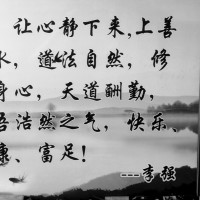 让心静下来,上善
水，道法自然，修
身心，天道酬勤，
吾浩然之气，快乐、
康、富足!
---李强